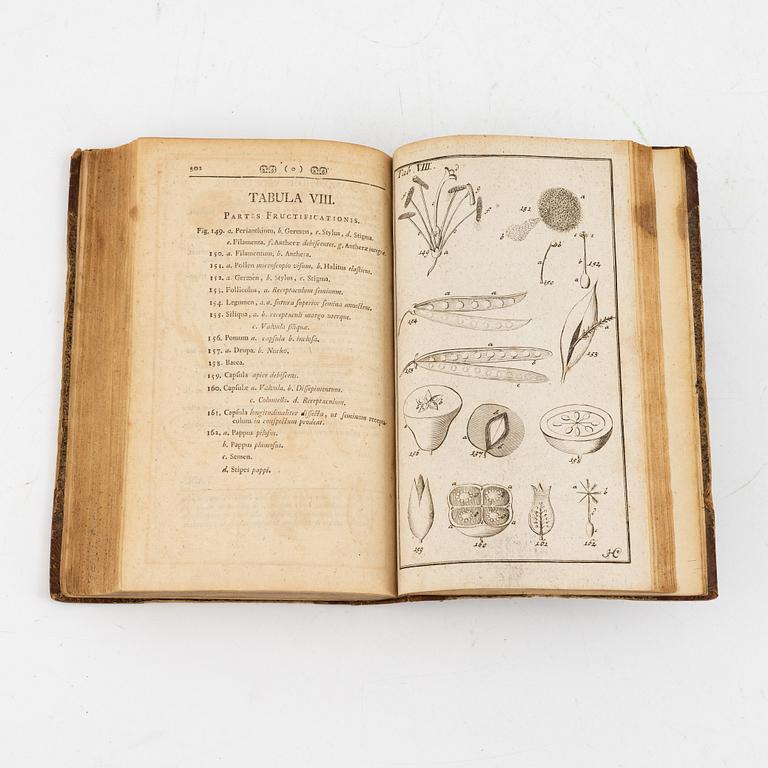 302 ( o )
TABULA VIII.
PARTES FRUCTIFICATIONIS.
Fig. 149. a. Perianthium, b. Germen, c. Stylus, d. Stigma.
e. Filamenta. f. Antheræ dehiscentes. g. Antheræ integræ
150. a. Filamentum, b. Anthera.
151. a. Pollen microscopio visum, b. Halitus elasticus.
152. a. Germen, b. Stylus, c. Stigma.
153. Folliculus, a. Receptaculum seminum.
154. Legumen, a. a. sutura superior semina annectens.
155. Siliqua, a. b. receptaculi margo uterque.
c. Valvula siliquæ.
156. Pomum a. capsula b. inclusa.
157. a. Drupa. b. Nucleo.
158. Bacca.
159. Capsula apice dehiscens.
160. Capsulæ a. Valvula. b. Dissepimentum.
c. Columella. d. Receptaculum.
161. Capsula longitudinaliter dissecta, ut seminum recepta-
culum in conspectum prodeat.
162. a. Pappus pilosus.
b. Pappus plumosus.
c. Semen.
d. Stipes pappi.
Tab. VIII.
149
151
150
152
154
153
155
156
157
158
159
160
161
162